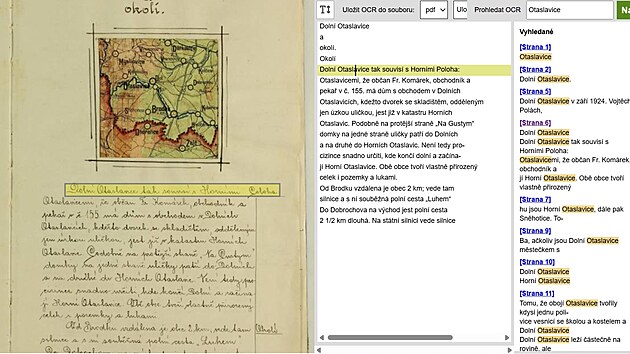 okolí.
Dolní Otaslavice tak souvisí s Horními Poloha:
Otaslavicemi, že občan Fr. Komárek, obchodník a
pekař v č. 155 má dům s obchodem v Dolních
Otaslavicích, kdežto dvorek se skladištěm, odděleným
jen úzkou uličkou, jest již v katastru Horních
Otaslavic. Podobně na protější straně „Na Gustym"
domky na jedné straně uličky patří do Dolních
a na druhé do Horních Otaslavic. Není tedy pro-
cizince snadno určiti, kde končí Dolní a začína-
jí Horní Otaslavice. Obě obce tvoří vlastně přirozený
celek s pozemky a lukami.
Od Brodku vzdálena je obec 2 km; vede tam
silnice a s ní souběžná polní cesta „Luhem"
TI
Uložit OCR do souboru:
pdf
Ulo
Prohledat OCR
Otaslavice
Na
Dolní Otaslavice
a
okolí.
Okolí
Dolní Otaslavice tak souvisí s Horními Poloha:
Otaslavicemi, že občan Fr. Komárek, obchodník a
pekař v č. 155. má dům s obchodem v Dolních
Otaslavicích, kdežto dvorek se skladištěm, odděleným
jen úzkou uličkou, jest již v katastru Horních
Otaslavic. Podobně na protější straně „Na Gustym"
domky na jedné straně uličky patří do Dolních
a na druhé do Horních Otaslavic. Není tedy pro-
cizince snadno určiti, kde končí dolní a začína-
jí Horní Otaslavice. Obě obce tvoří vlastně přirozený
celek i pozemky a lukami.
Od Brodku vzdálena je obec 2 km; vede tam
silnice a s ní souběžná polní cesta „Luhem"
Do Dobrochova na východ jest polní cesta
2 1/2 km dlouhá. Na státní silnici vede silnice
Vyhledané
[Strana 1]
Otaslavice
[Strana 2]
Dolní Otaslavice.
[Strana 5]
Dolní Otaslavice v září 1924. Vojtěch
Polách,
[Strana 6]
Dolní Otaslavice
Dolní Otaslavice tak souvisí s
Horními Poloha:
Otaslavicemi, že občan Fr. Komárek,
obchodník a
jí Horní Otaslavice. Obě obce tvoří
vlastně přirozený
[Strana 7]
hu jsou Horní Otaslavice, dále pak
Sněhotice. To-
[Strana 9]
Ba, ačkoliv jsou Dolní Otaslavice
městečkem s
[Strana 10]
Dolní Otaslavice
Horní Otaslavice
[Strana 11]
Tomu, že obojí Otaslavice tvořily
kdysi jednu poli-
vice vesnicí se školou a kostelem a
Dolní Otaslavice
Dolní Otaslavice leží částečně na
rovině, ale